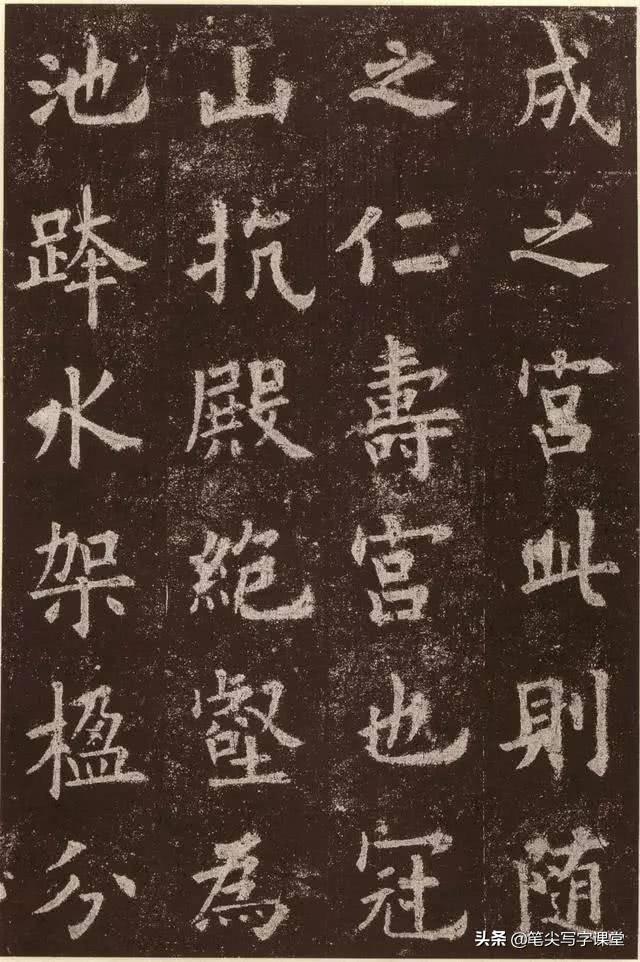 成之宮此則随
之仁壽宮也冠
山抗殿絶壑為
池跨水架楹分
头条 @笔尖写字课堂